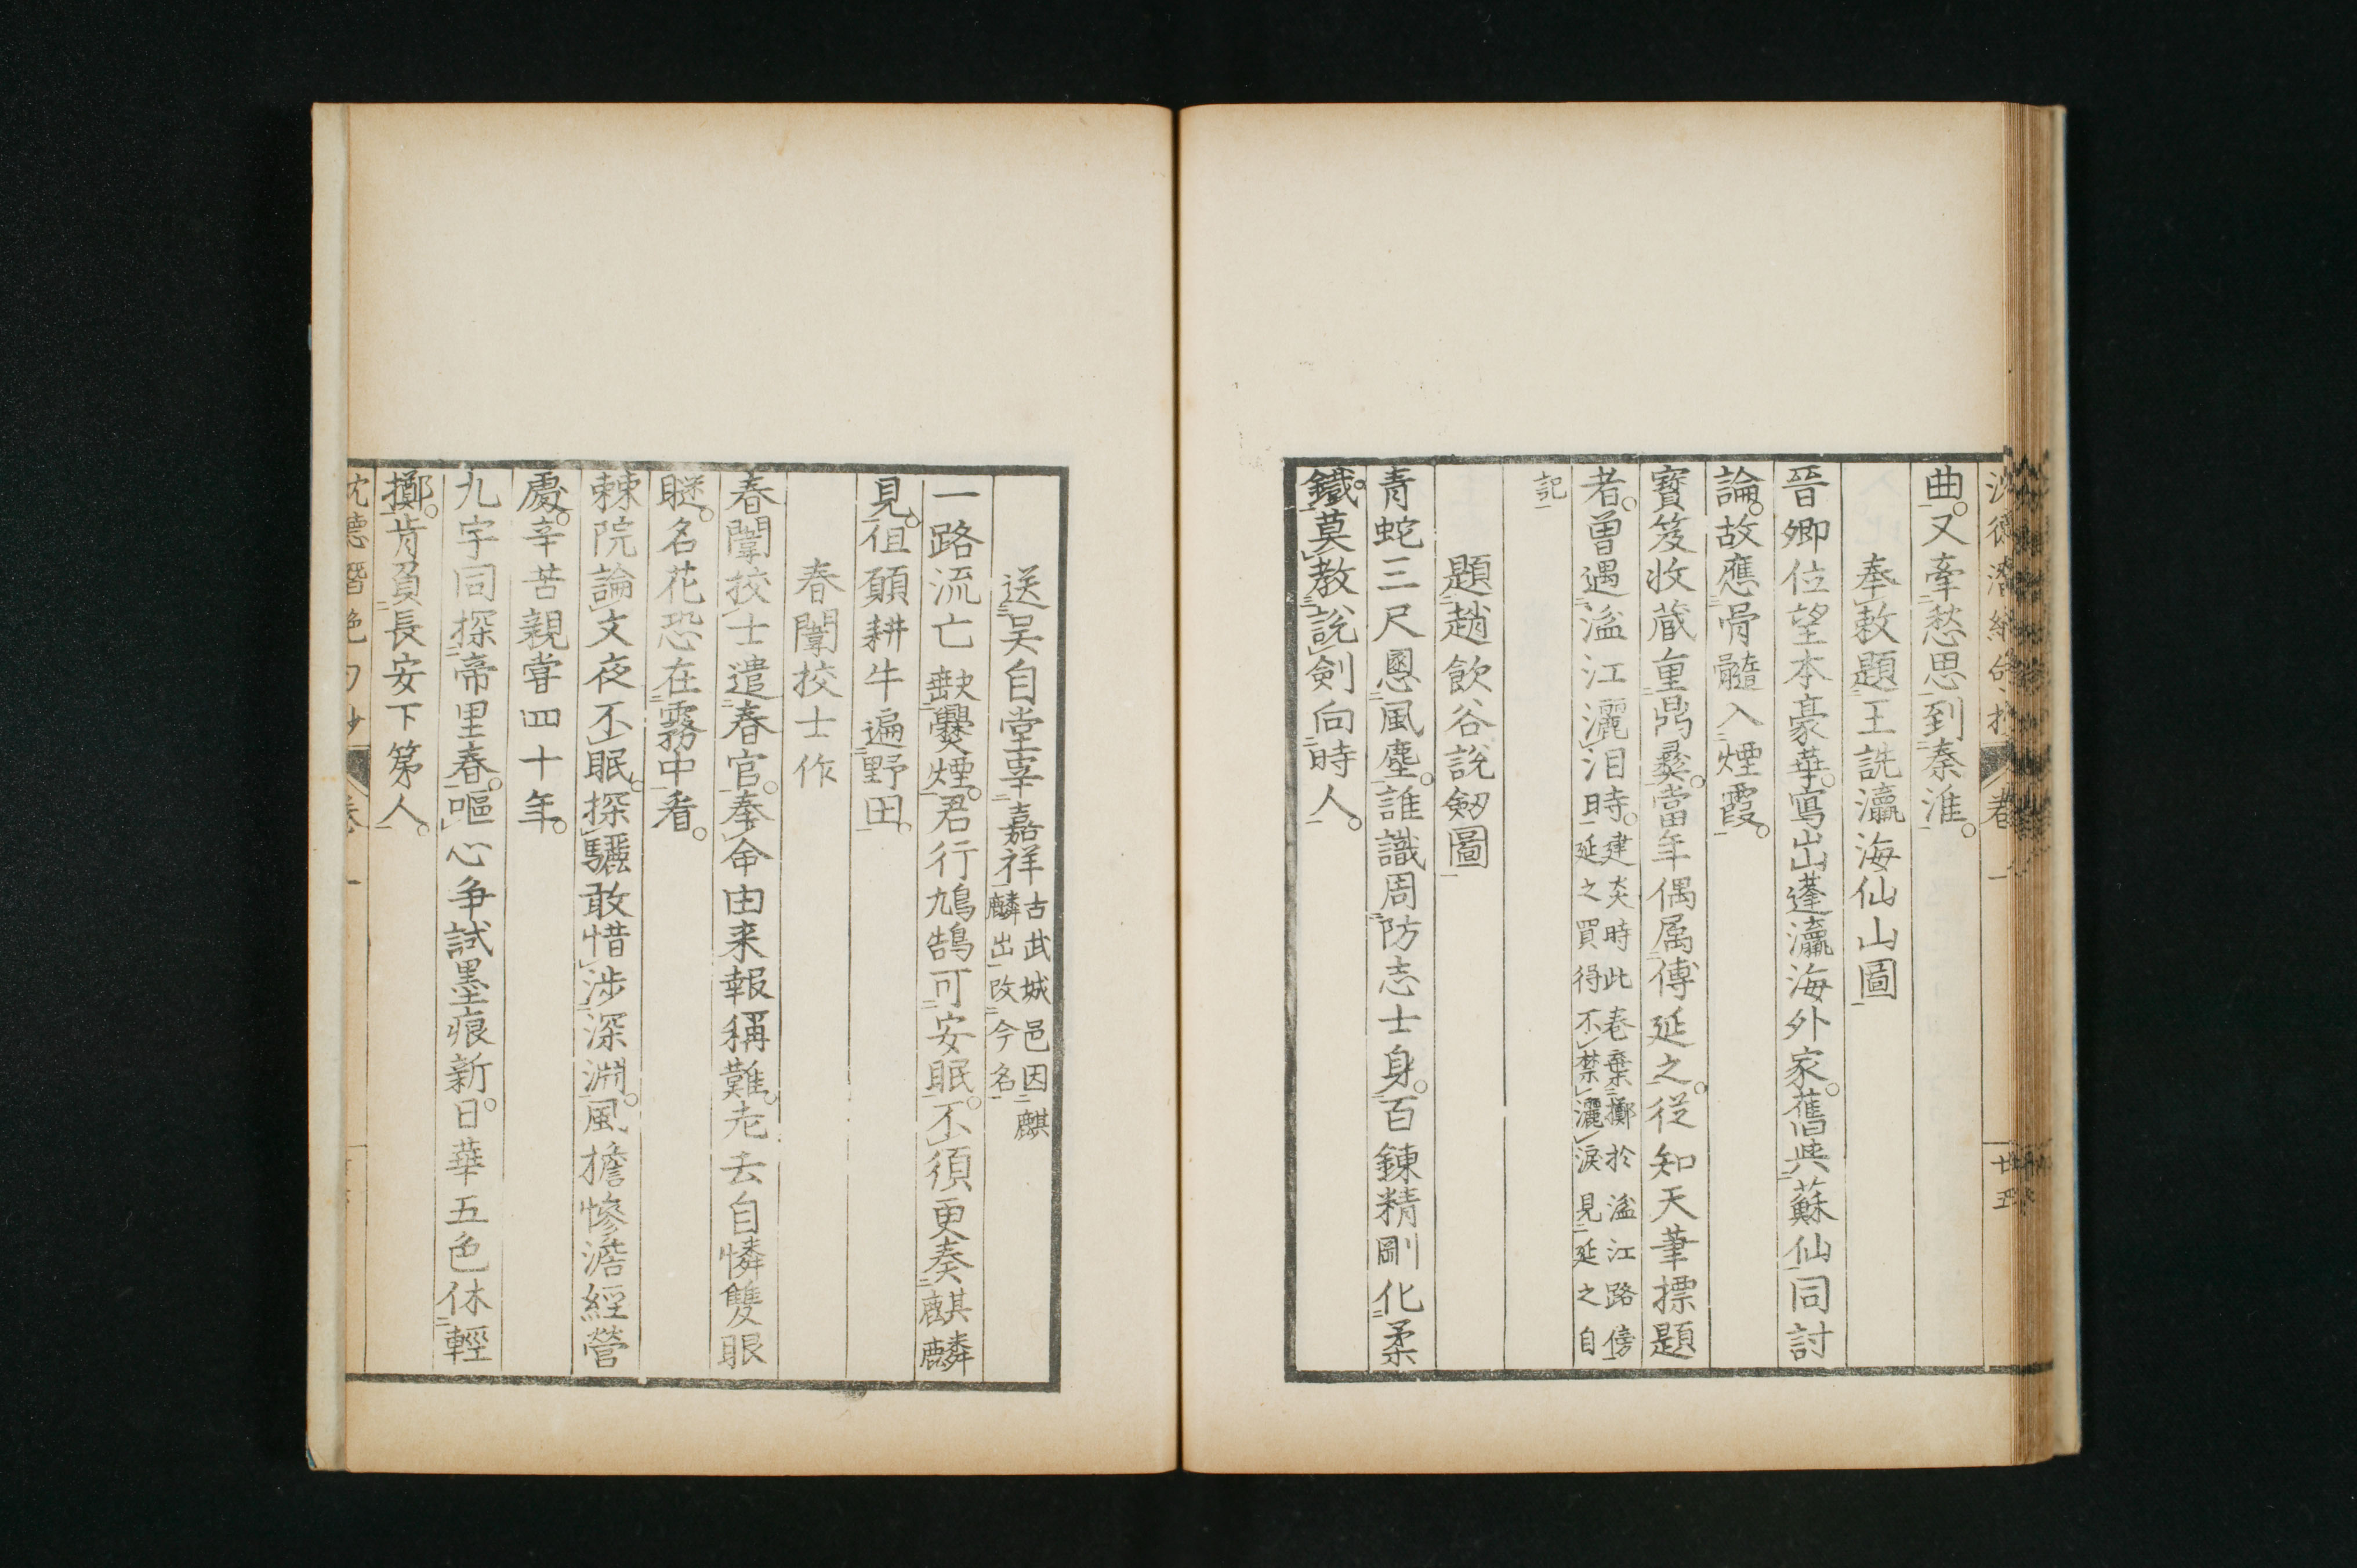 曲。又牽愁思到秦淮。
奉敕題王詵瀛海仙山圖
晉卿位望本豪華。寫出蓬瀛海外家。舊與蘇仙同討
論。故應骨髓入煙霞。
寶笈收藏重鼎彝。當年偶屬傅延之。從知天筆摽題
者。曾遇湓江灑泪時。建炎時此卷棄擲於湓江路傍
延之買得不禁灑淚見延之自
記
題趙飲谷說劔圖
青蛇三尺恩風塵。誰識周防志士身。百鍊精剛化柔
鐵。莫教說劍向時人。
廿五
送吴自堂宰嘉祥古武城邑因麒
麟出改今名
一路流亡缺爨煙。君行鳩鵠可安眠。不須更奏麒麟
見。徂願耕牛遍野田。
春闈校士作
春闈挍士遣春官。奉命由来報稱難。老去自憐雙眼
瞇。名花恐在霧中看。
棘院論文夜不眠。探驪敢惜涉深淵。風擔慘澹經營
處。辛苦親嘗四十年。
九宇同探帝里春。嘔心争試墨痕新。日華五色休輕
擲。肯負長安下第人。